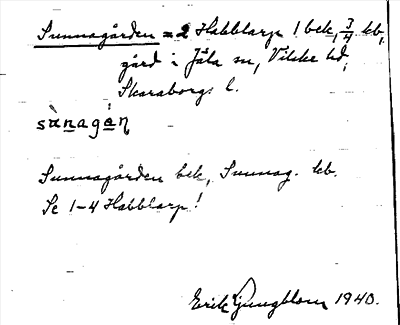 Sunnagården = 2 Habblarp 1 bek, 3/4 kb,
gård i Jäla sn, Vilske hd,
Skaraborgs l.
sànagáɳ
Sunnagården bek, Sunnag. kb.
Se 1-4 Habblarp!
Erik Ljungblom 1940.